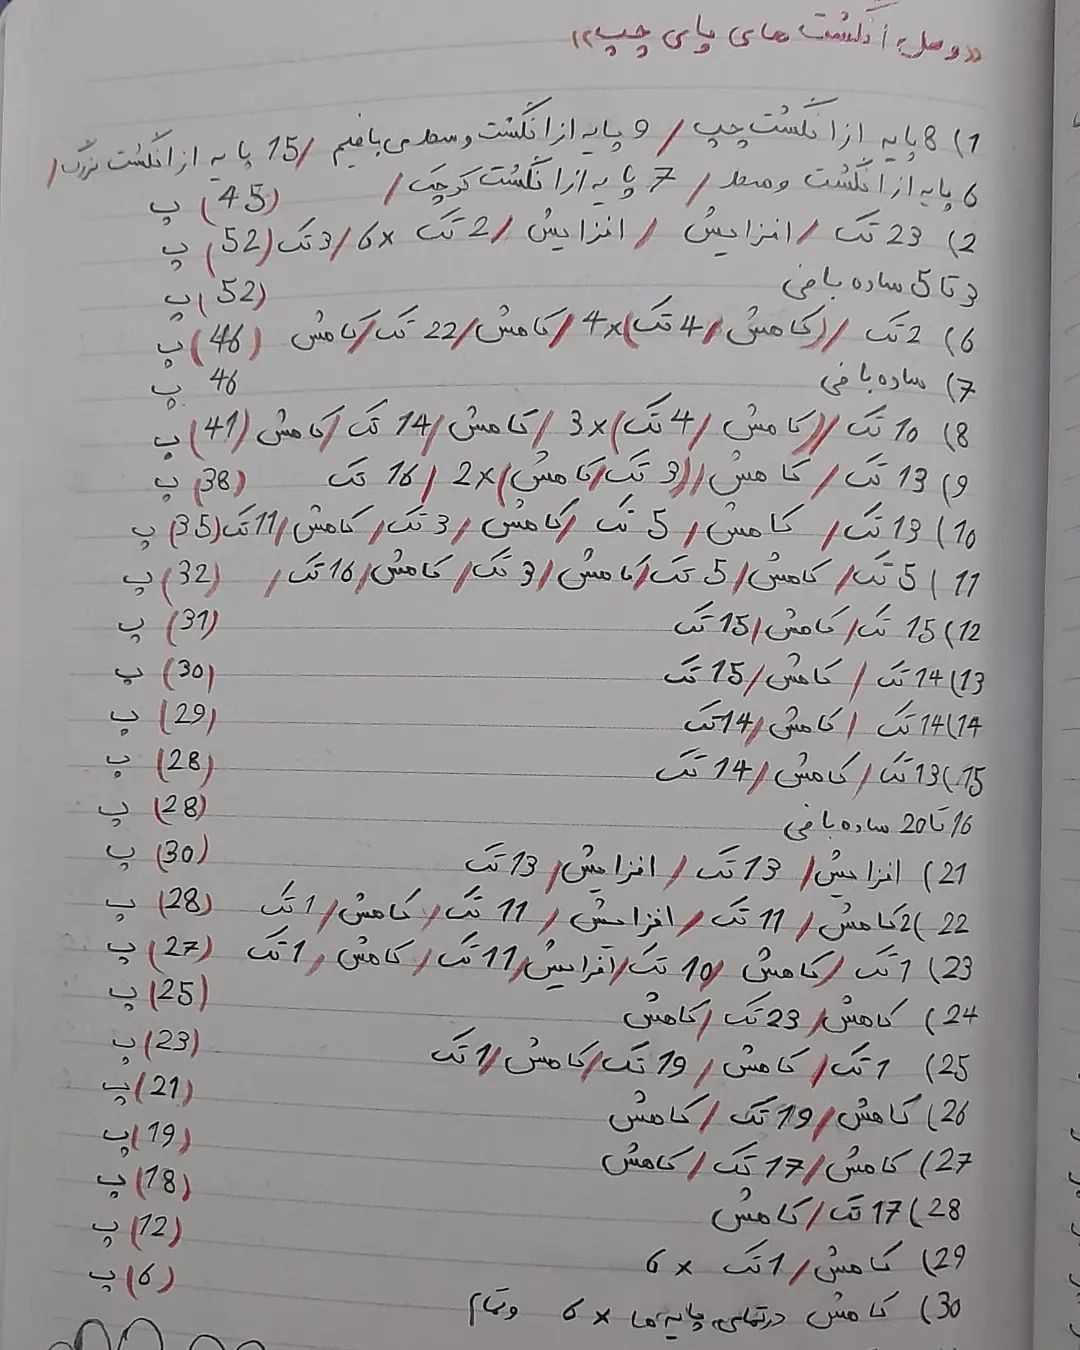 «وصل انگشت های پای چپ»
1) 8 پایه از انگشت چپ / 9 پایه از انگشت وسط می بافیم / 15 پایه از انگشت بزرگ /
6 پایه از انگشت وسط / 7 پایه از انگشت کوچک / (45) پ
2) 23 تک / افزایش / افزایش / 2 تک 6x / 3 تک (52) پ
3 تا 5 ساده بافی (52) پ
6) 2 تک / (کاهش / 4 تک) 4x / کاهش / 22 تک / کاهش (46) پ
7) ساده بافی 46 پ
8) 10 تک / (کاهش / 4 تک) 3x / کاهش / 14 تک / کاهش (41) پ
9) 13 تک / کاهش / (3 تک / کاهش) 2x / 16 تک (38) پ
10) 13 تک / کاهش / 5 تک / کاهش / 3 تک / کاهش / 11 تک (35) پ
11) 5 تک / کاهش / 5 تک / کاهش / 3 تک / کاهش / 16 تک / (32) پ
12) 15 تک / کاهش / 15 تک (31) پ
13) 14 تک / کاهش / 15 تک (30) پ
14) 14 تک / کاهش / 14 تک (29) پ
15) 13 تک / کاهش / 14 تک (28) پ
16 تا 20 ساده بافی (28) پ
21) افزایش / 13 تک / افزایش / 13 تک (30) پ
22) 2 کاهش / 11 تک / افزایش / 11 تک / کاهش / 1 تک (28) پ
23) 1 تک / کاهش / 10 تک / افزایش / 11 تک / کاهش / 1 تک (27) پ
24) کاهش / 23 تک / کاهش (25) پ
25) 1 تک / کاهش / 19 تک / کاهش / 1 تک (23) پ
26) کاهش / 19 تک / کاهش (21) پ
27) کاهش / 17 تک / کاهش (19) پ
28) 17 تک / کاهش (18) پ
29) کاهش / 1 تک 6x (12) پ
30) کاهش در تمامی پایه ها 6x وتمام (6) پ